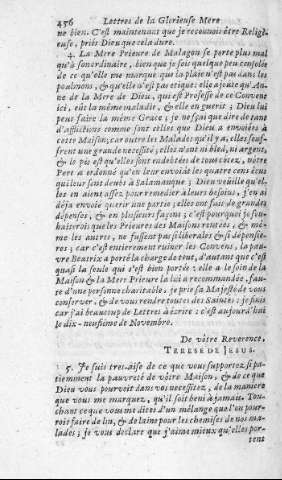 456 Lettres de la Glorieuse Mere
ne bien. C'est maintenant que je reconnois être Religi-
euse, priés Dieu que cela dure.
4. La Mere Prieure de Malagon se porte plus mal
qu'à son ordinaire, bien que je sois quelque peu consolée
de ce qu'elle me marque que la plaie n'est pas dans les
poulmons, & qu'elle n'est pas etique: elle ajoute qu'An-
ne de la Mere de Dieu, qui est Professe de ce Convent
ici, eût la même maladie, & elle en guerit; Dieu lui
peut faire la même Grace; je ne sçai que dire de tant
d'afflictions comme sont celles que Dieu a envoiées à
cette Maison; car outre les Malades qu'il y a, elles souf-
frent une grande necessité; elles n'ont ni bled, ni argent,
& le pis est qu'elles sont endebtées de tous côtez, nôtre
Pere a ordonné qu'on leur envoiât les quatre cens écus
qui leur sont deubs à Salamanque; Dieu veuille qu'el-
les en aient assez pour remedier à leurs besoins, j'en ai
déja envoié querir une partie; elles ont fait de grandes
dépenses, & en plusieurs façons; c'est pourquoi je sou-
haiterois que les Prieures des Maisons rentées, & mê-
me les autres, ne fussent pas si liberales & si dépensie-
res; car c'est entierement ruiner les Convens, la pau-
vre Beatrix a porté la charge de tout, d'autant que c'est
quasi la seule qui s'est bien portée & elle a le soin de la
Maison & la Mere Prieure la lui a recommandée, fau-
te d'une personne charitable, je prie sa Majesté de vous
conserver, & de vous rendre toutes des Saintes; je finis
car j'ai beaucoup de Lettres à écrire; c'est aujourd'hui
le dix-neufieme de Novembre.
De vôtre Reverence,
TERESE DE JESUS.
5. Je suis tres-aise de ce que vous supportez si pa-
tiemment la pauvreté de vôtre Maison, & de ce que
Dieu vous pourvoit dans vos necessitez, de la maniere
que vous me marquez, qu'il soit beni à jamais. Tou-
chant ce que vous me dites d'un mélange que l'on pour-
roit faire de lin, & de laine pour les chemises de nos ma-
lades; je vous declare que j'aime mieux qu'elles por-
tent